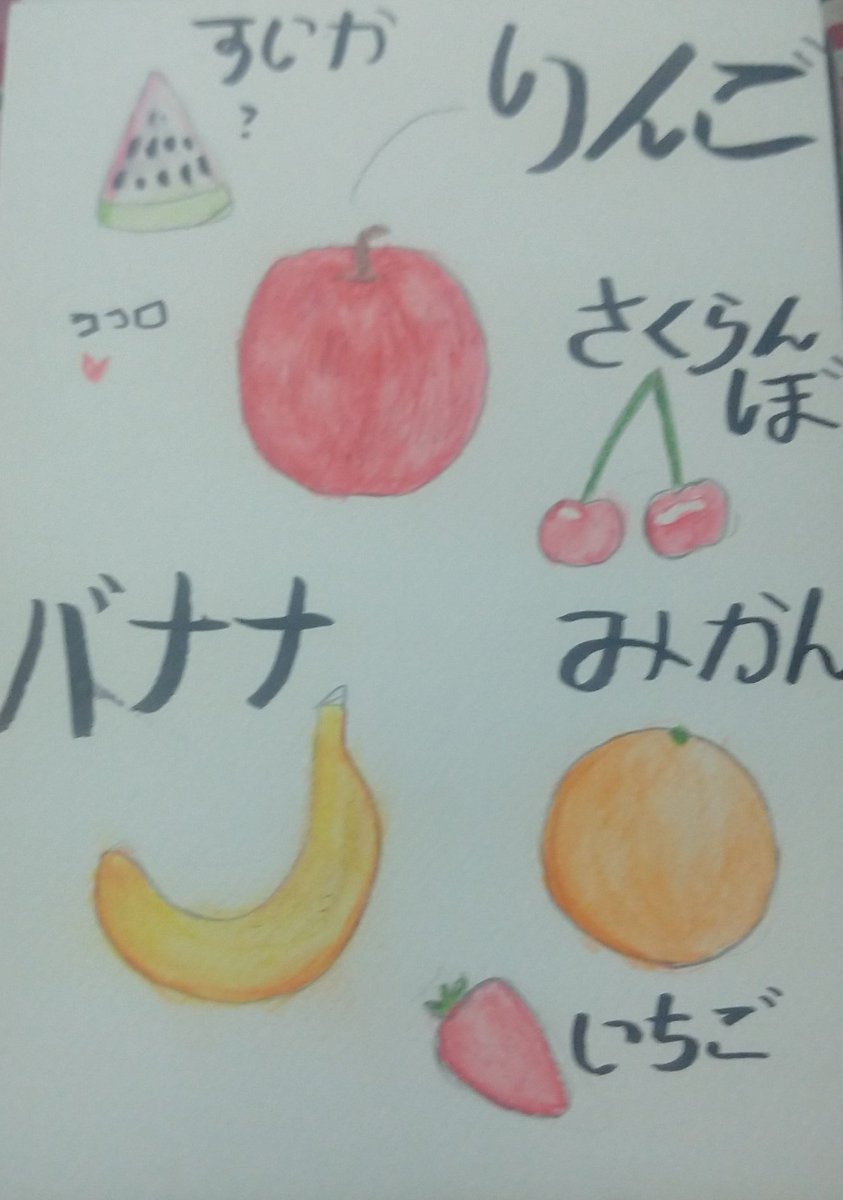 すいか
?
りんご
ココロ
さくらん
ぼ
バナナ
みかん
いちご